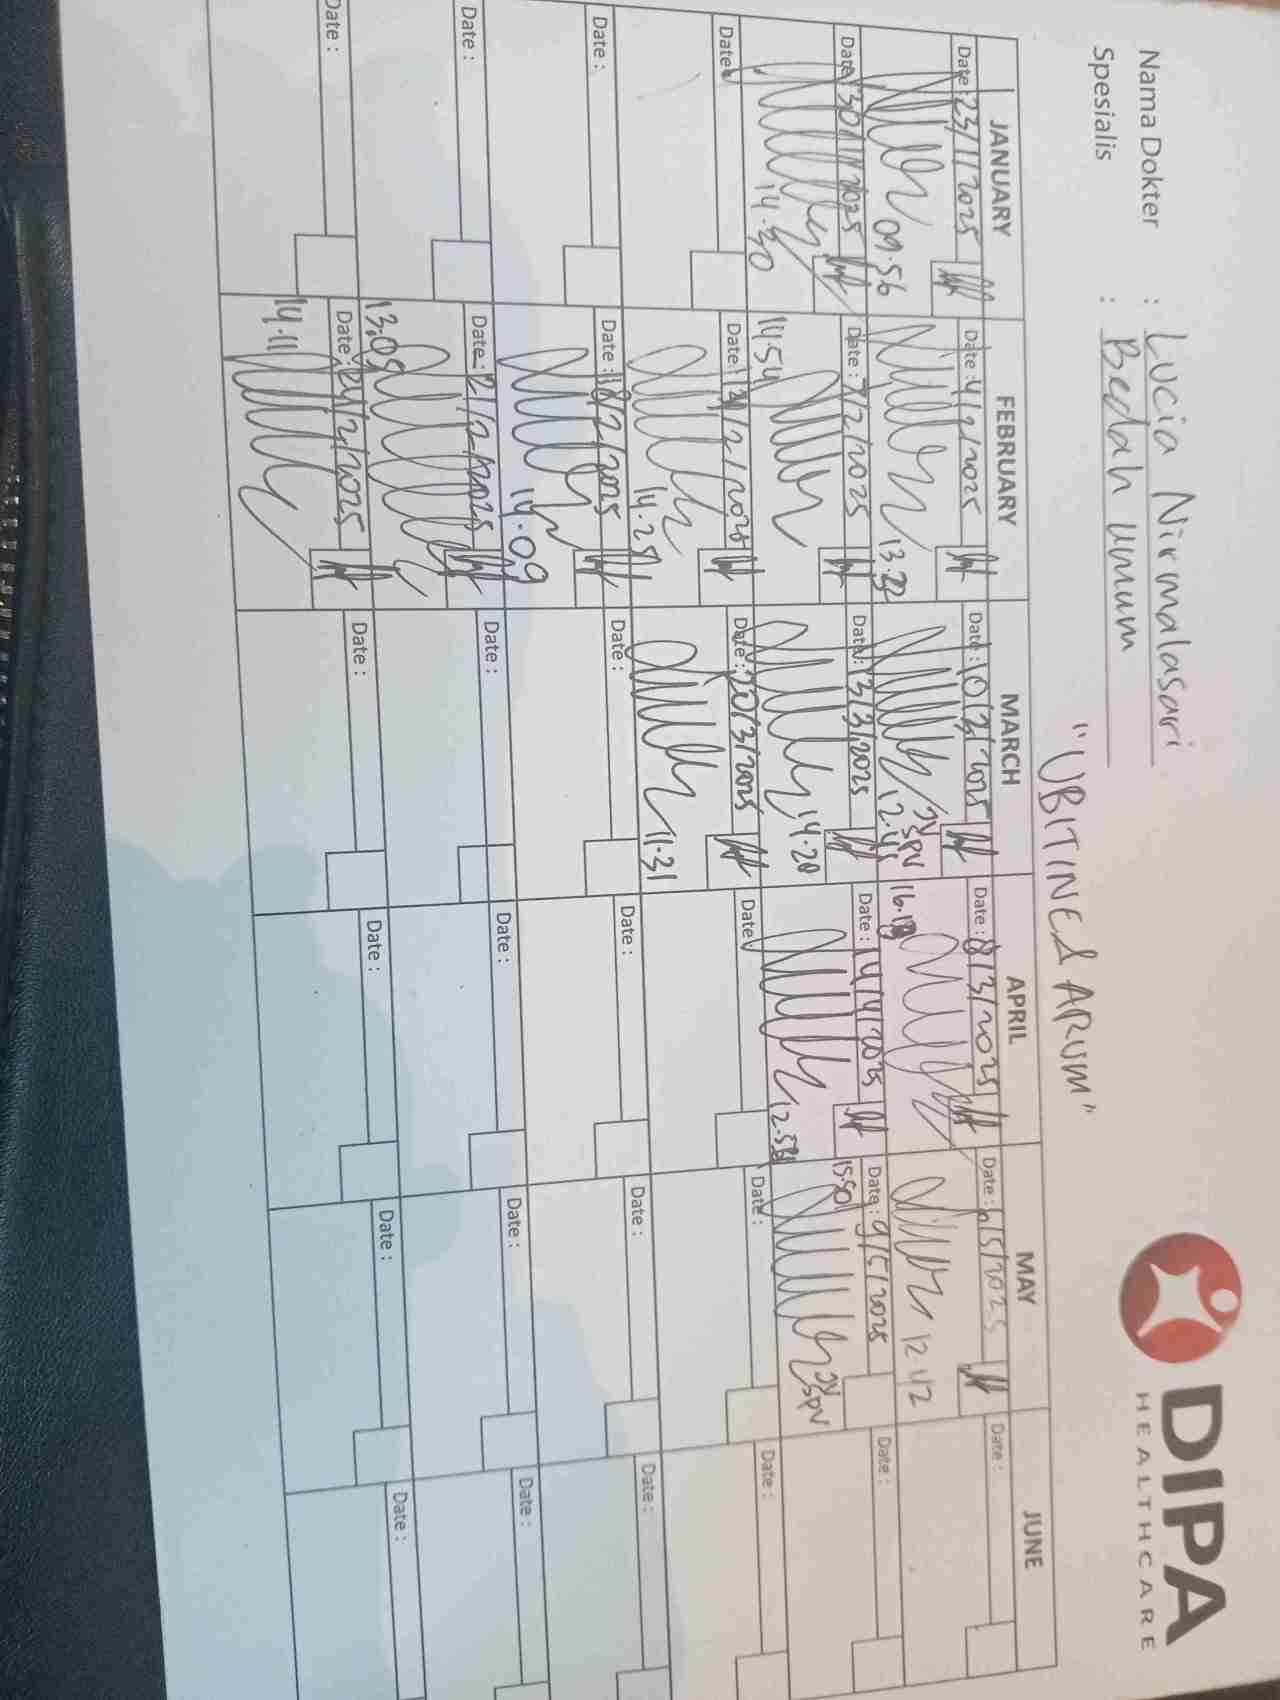 Nama Dokter : Lucia Nirmalasari
Spesialis : Bedah Umum
DIPA
HEALTHCARE
JANUARY FEBRUARY MARCH APRIL MAY JUNE
Date : 23/1/2025 Date : 4/2/2025 Date : 10/3/2025 Date : 8/3/2025 Date : 6/5/2025 Date :
09.56 13.22 JV SPV 12.41 16.13 12.42
Date : 30/1/2025 Date : 7/2/2025 Date : 13/3/2025 Date : 14/4/2025 Date : 9/5/2025 Date :
14.30 14.54 14.20 12.58 15.50 JV SPV
Date : Date : 13/2/2025 Date : 20/3/2025 Date Date : Date :
14.25 11.31
Date : Date : 18/2/2025 Date : Date : Date : Date :
14.09
Date : Date : 21/2/2025 Date : Date : Date : Date :
13.05
Date : Date : 24/2/2025 Date : Date : Date : Date :
14.11